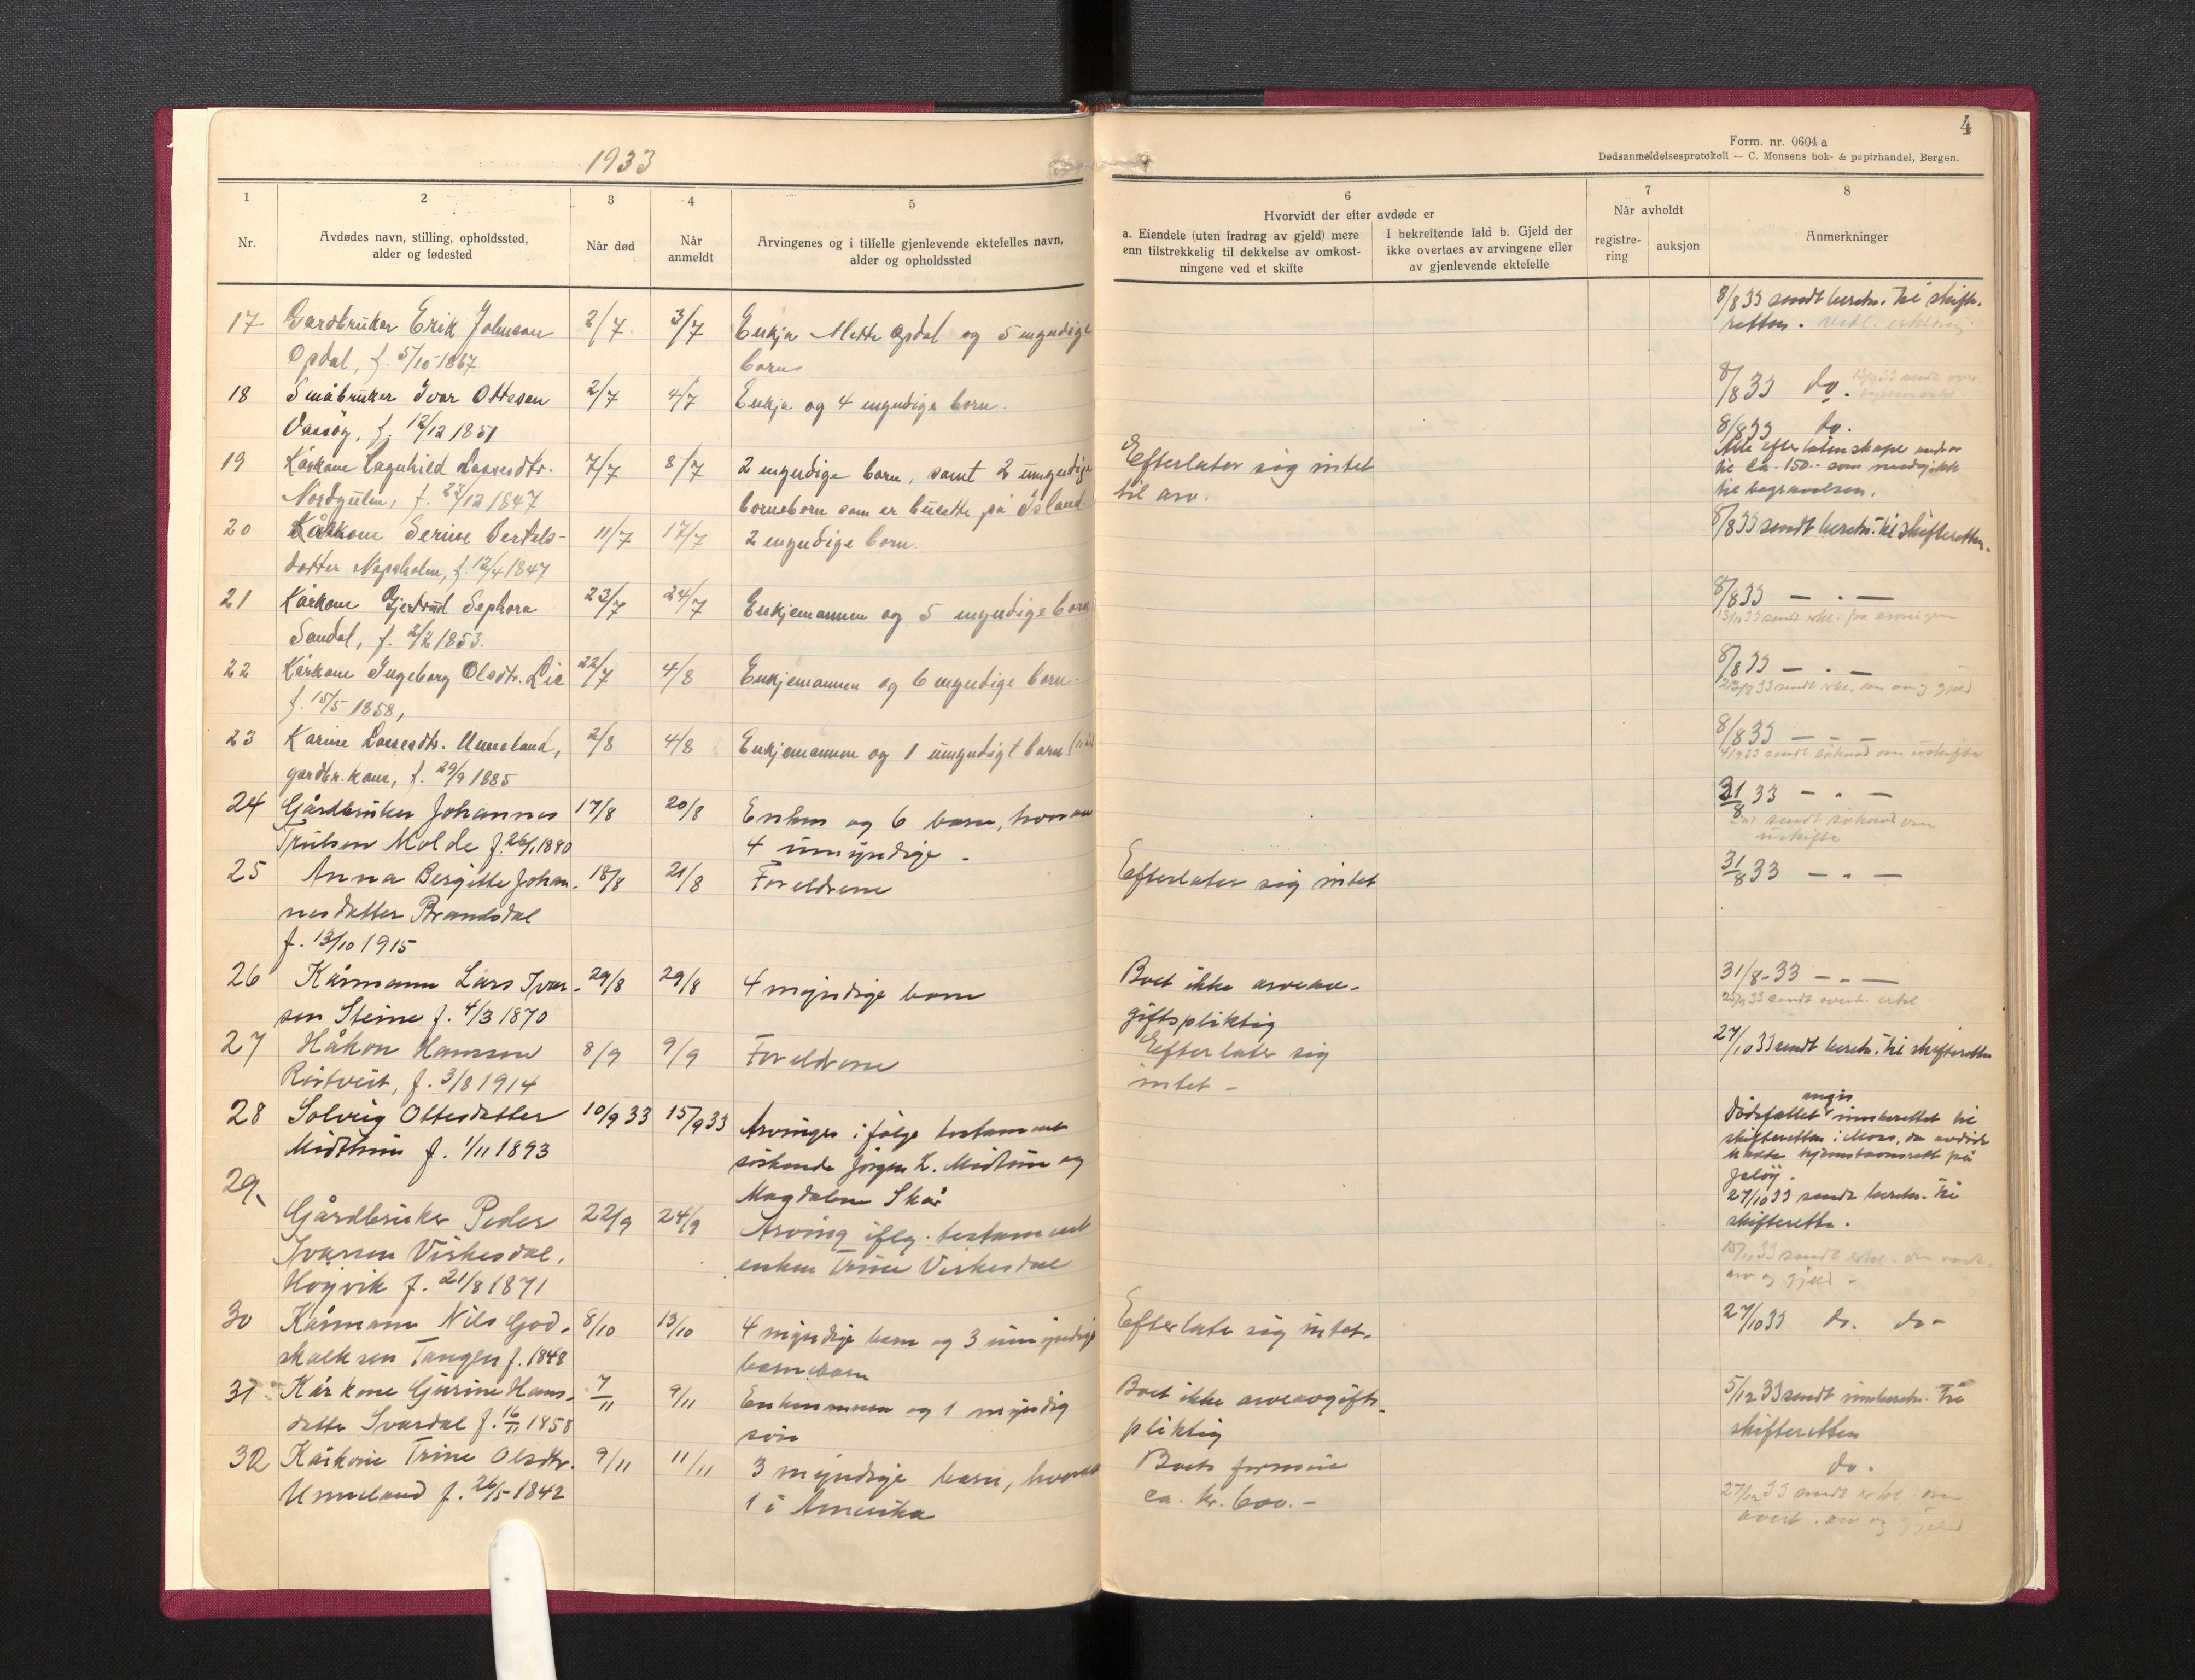 1933
4
Form. nr. 0604 a
Dødsanmeldelsesprotokoll — C. Monsens bok- & papirhandel, Bergen.
1
2
3
4
5
6
7
8
Nr.
Avdødes navn, stilling, opholdssted,
alder og fødested
Når død
Når
anmeldt
Arvingenes og i tilfelle gjenlevende ektefelles navn,
alder og opholdssted
Hvorvidt der efter avdøde er
a. Eiendele (uten fradrag av gjeld) mere
enn tilstrekkelig til dekkelse av omkost-
ningene ved et skifte
I bekreftende fald b. Gjeld der
ikke overtaes av arvingene eller
av gjenlevende ektefelle
Når avholdt
registre-
ring
auksjon
Anmerkninger
17 Gardbruker Erik Johnsen 2/7 3/7 Enkja Mette Opdal og 5 myndige 8/8 33 sendt beretn. til skifte-
Opdal, f. 5/10 1867 born retten.
18 Småbruker Ivar Ottesen 2/7 4/7 Enkja og 4 myndige born. 8/8 33 do.
f. 12/12 1851
19 Kårkone Ragnhild Lassesdtr. 7/7 8/7 2 myndige born, samt 2 umyndige Efterlater sig intet 8/8 33 do.
Nordgulen, f. 23/12 1847 borneborn som er busette på Island til arv. Alle efterlatenskape
til ca. 150.- som medgikk
til begravelsen.
20 Kårkone Serine Bertels- 11/7 17/7 2 myndige born. 8/8 33 sendt beretn. til skifteretten.
dotter f. 12/4 1847
21 Kårkone Gjertrud Sephora 23/7 24/7 Enkjemannen og 5 myndige born 8/8 33 — . —
Sandal, f. 2/2 1853.
22 Kårkone Ingeborg Olsdtr. Lie 22/7 4/8 Enkjemannen og 6 myndige born. 8/8 33 — . —
f. 15/5 1858,
23 Karine Lassesdtr. Unneland, 2/8 4/8 Enkjemannen og 1 umyndigt barn 8/8 33 — - —
gardbr. kone, f. 29/9 1885 sendt søknad om uskifte
24 Gårdbruker Johannes 17/8 20/8 Enken og 6 barn, hvorav 31/8 33 — " —
Trulsen Molde f. 26/1 1880 4 umyndige - sendt søknad om
uskifte
25 Anna Bergitte Johan- 18/8 21/8 Foreldrene Efterlater sig intet 31/8 33 — " —
nesdatter Brandsdal
f. 13/10 1915
26 Kårmann Lars Ivar- 29/8 29/8 4 myndige barn Boet ikke arveav- 31/8-33 — " —
sen Steine f. 4/3 1870 giftspliktig
27 Håkon Hansen 8/9 9/9 Foreldrene Efterlater sig 27/10 33 sendt beretn. til skifteretten
f. 3/8 1914 intet -
28 Solveig Ottesdatter 10/9 33 15/9 33 Arvinger ifølge testament Dødsfallet angis innberettet til
Midthun f. 1/11 1893 søskende Jørgen L. Midtun og skifteretten i Moss, da avdøde
Magdalene Skår hadde hjemstavnsrett på
Jeløy.
29 Gårdbruker Peder 22/9 24/9 Arving iflg. testament 27/10 33 sendt beretn. til
Ivarsen Virkesdal, enken Trine Virkesdal skifterette.
Høyvik f. 21/8 1871 arv og gjeld -
30 Kårmann Nils God- 8/10 13/10 4 myndige barn og 3 umyndige Efterlate sig intet. 27/10 33 do. do -
skalksen Tangen f. 1848 barnebarn
31 Kårkone Gjurine Hans- 7/11 9/11 Enkemannen og 1 myndig Boet ikke arveavgifts- 5/12 33 sendt innberetn. til
datter Svardal f. 16/11 1858 søn pliktig skifteretten
32 Kårkone Trine Olsdtr. 9/11 11/11 3 myndige barn, hvorav Boets formue do.
Unneland f. 26/5 1842 1 i Amerika ca. kr. 600.-